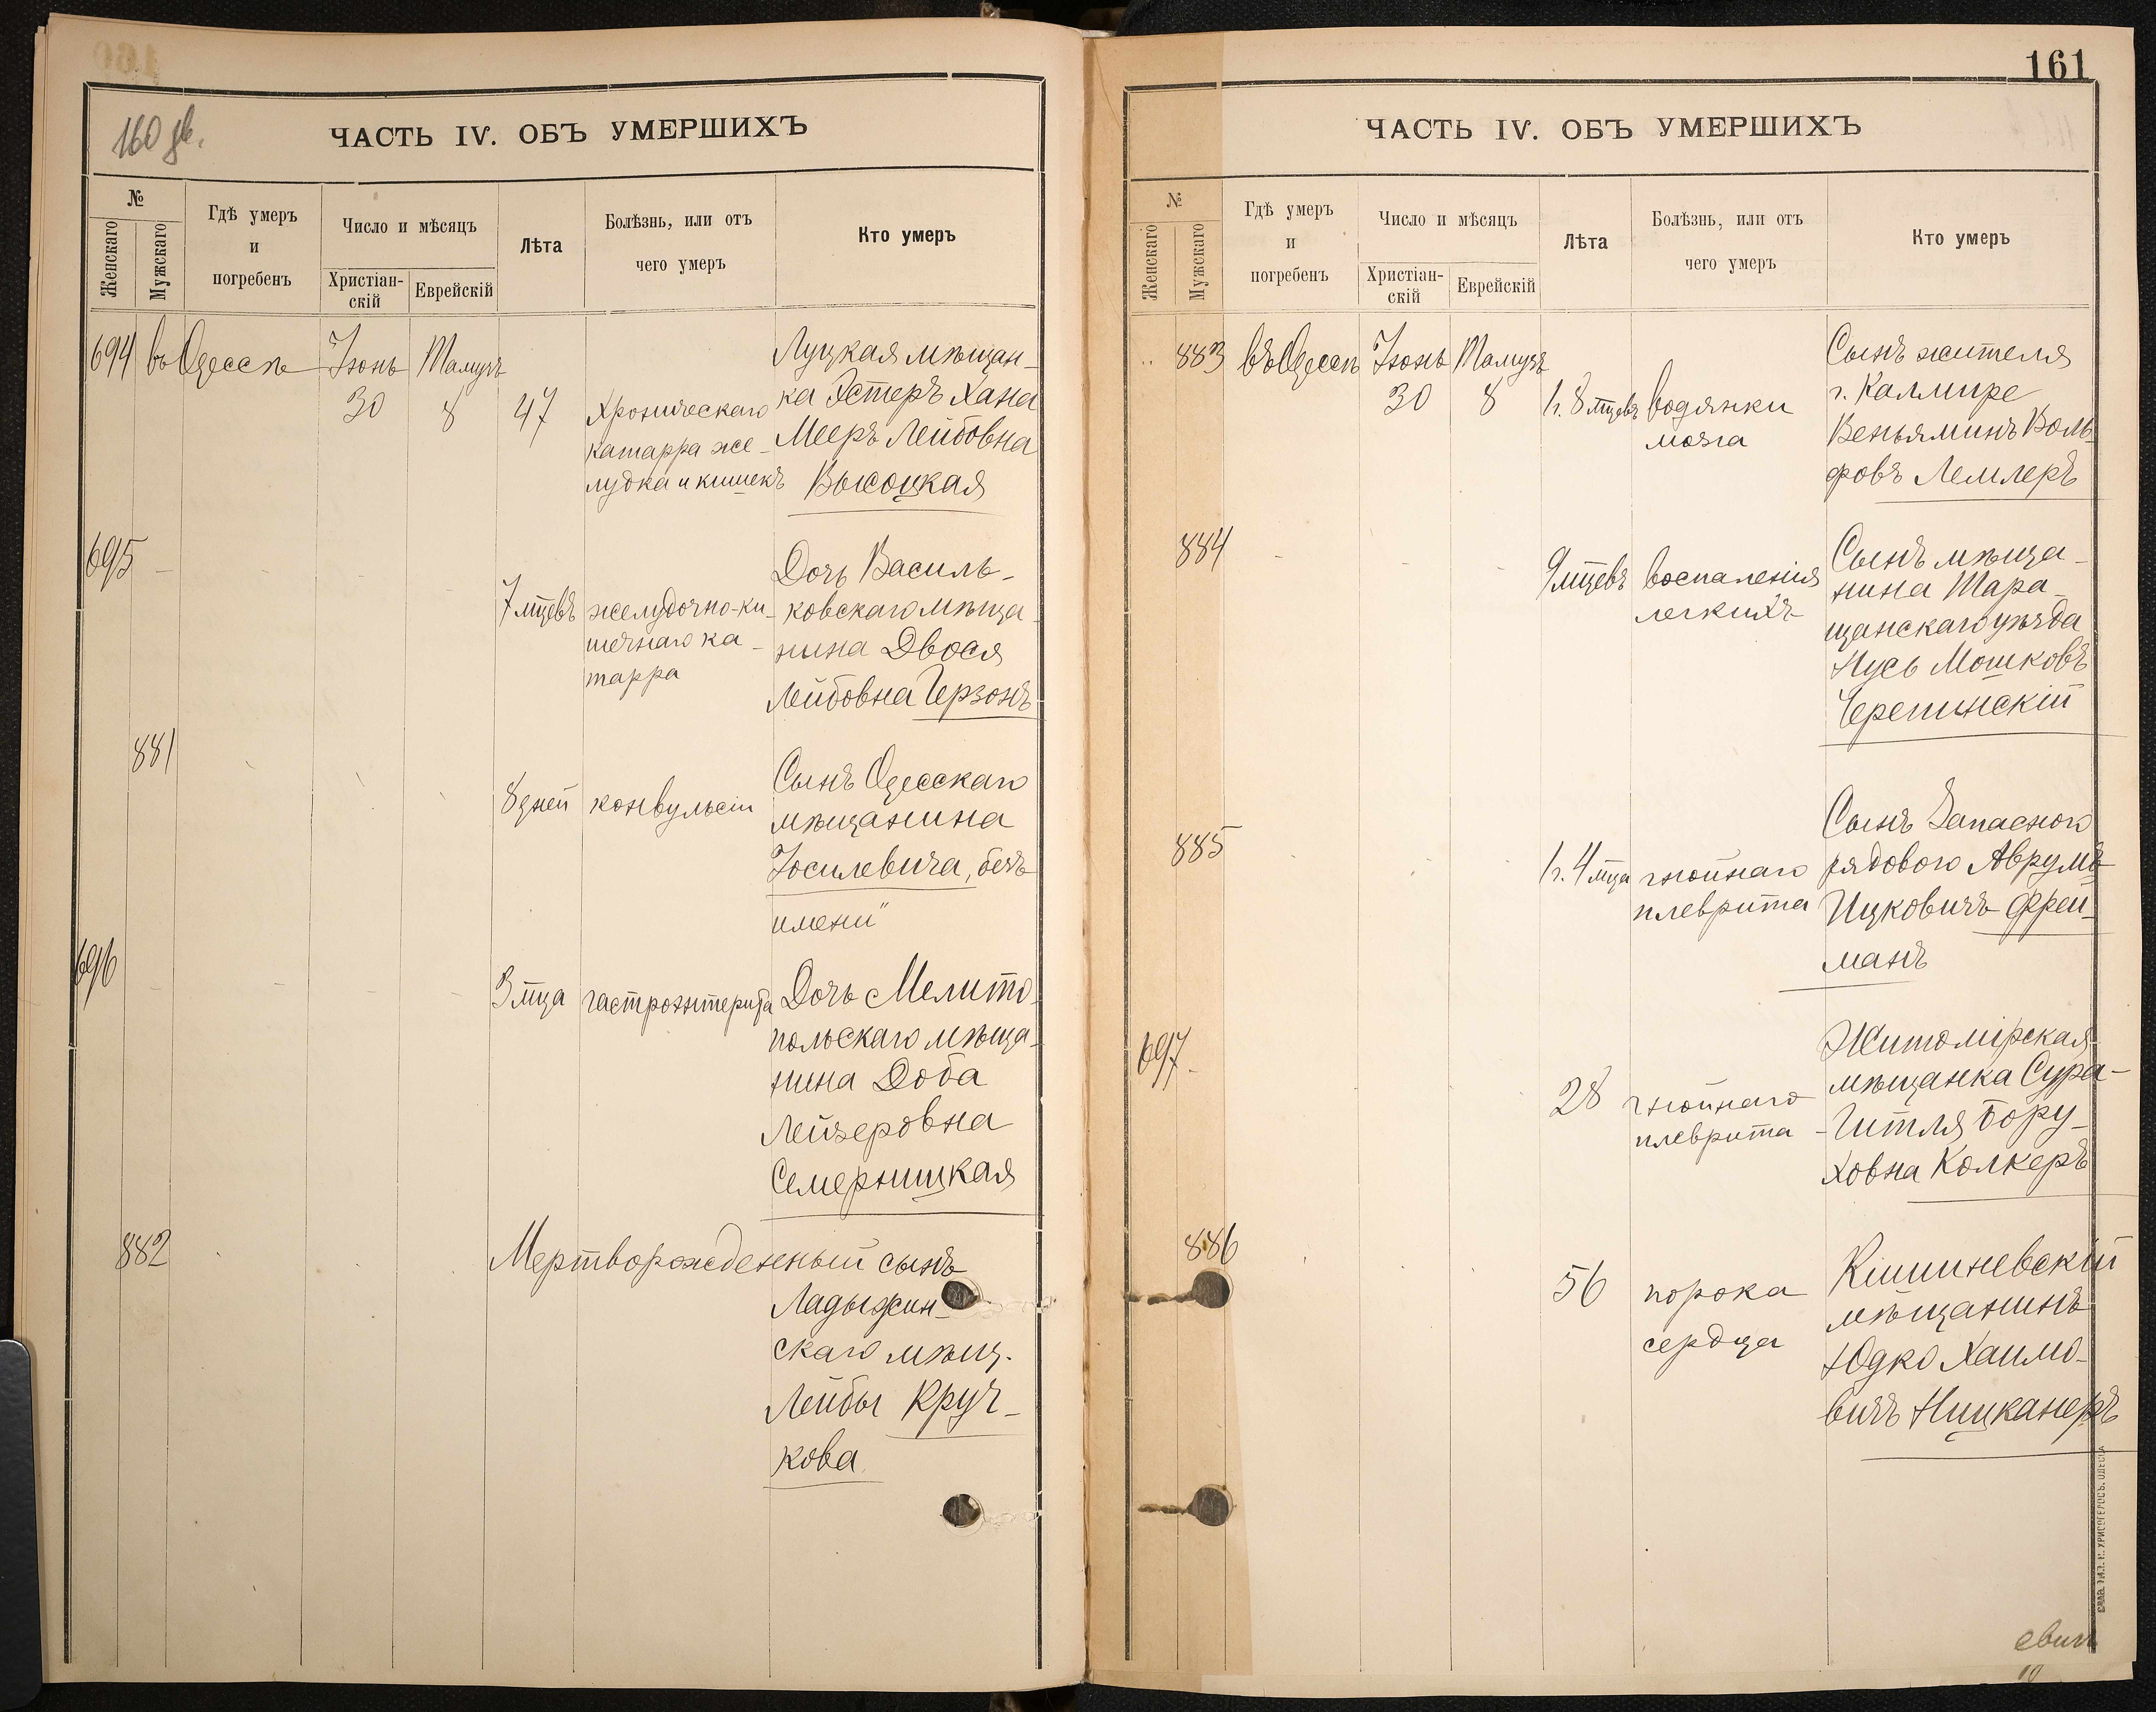 160 об.
ЧАСТЬ IV. ОБЪ УМЕРШИХЪ
№
Женскаго
Мужскаго
Гдѣ умеръ
и
погребенъ
Число и мѣсяцъ
Христіан-
скій
Еврейскій
Лѣта
Болѣзнь, или отъ
чего умеръ
Кто умеръ
694 въ Одессѣ Іюнь Тамузъ
30 8 47
Хроническаго
катарра же-
лудка и кишекъ
Луцкая мѣщан-
ка Эстеръ Хана
Мееръ Лейбовна
Высоцкая
695
7 мцевъ
желудочно-ки-
шечнаго ка-
тарра
Дочь Василь-
ковскаго мѣща-
нина Двося
Лейбовна Герзонъ
881
8 дней
конвульсіи
Сынъ Одесскаго
мѣщанина
Іосилевича, безъ
имени
696
3 мца
гастроэнтерита
Дочь Мелито-
польскаго мѣща-
нина Доба
Лейзеровна
Семерницкая
882
Мертворожденный сынъ
Ладыжин-
скаго мѣщ.
Лейбы Круч-
кова
161
ЧАСТЬ IV. ОБЪ УМЕРШИХЪ
№
Женскаго
Мужскаго
Гдѣ умеръ
и
погребенъ
Число и мѣсяцъ
Христіан-
скій
Еврейскій
Лѣта
Болѣзнь, или отъ
чего умеръ
Кто умеръ
883 въ Одессѣ Іюнь Тамузъ
30 8 1 г. 8 мцевъ
водянки
мозга
Сынъ жителя
г. Каллире
Веньяминъ Воль-
фовъ Лемлеръ
884
9 мцевъ
воспаленія
легкихъ
Сынъ мѣща-
нина Тара-
щанскаго уѣзда
Нусь Мошковъ
Черепинскій
885
1 г. 4 мца
гнойнаго
плеврита
Сынъ Запаснаго
рядового Аврумъ
Ицковичъ Фрей-
манъ
697
28
гнойнаго
плеврита
Житомірская
мѣщанка Сура-
-Гитля Бору-
ховна Колкеръ
886
56
порока
сердца
Кишиневскій
мѣщанинъ
Юдко Хаимо-
вичъ Ницканеръ